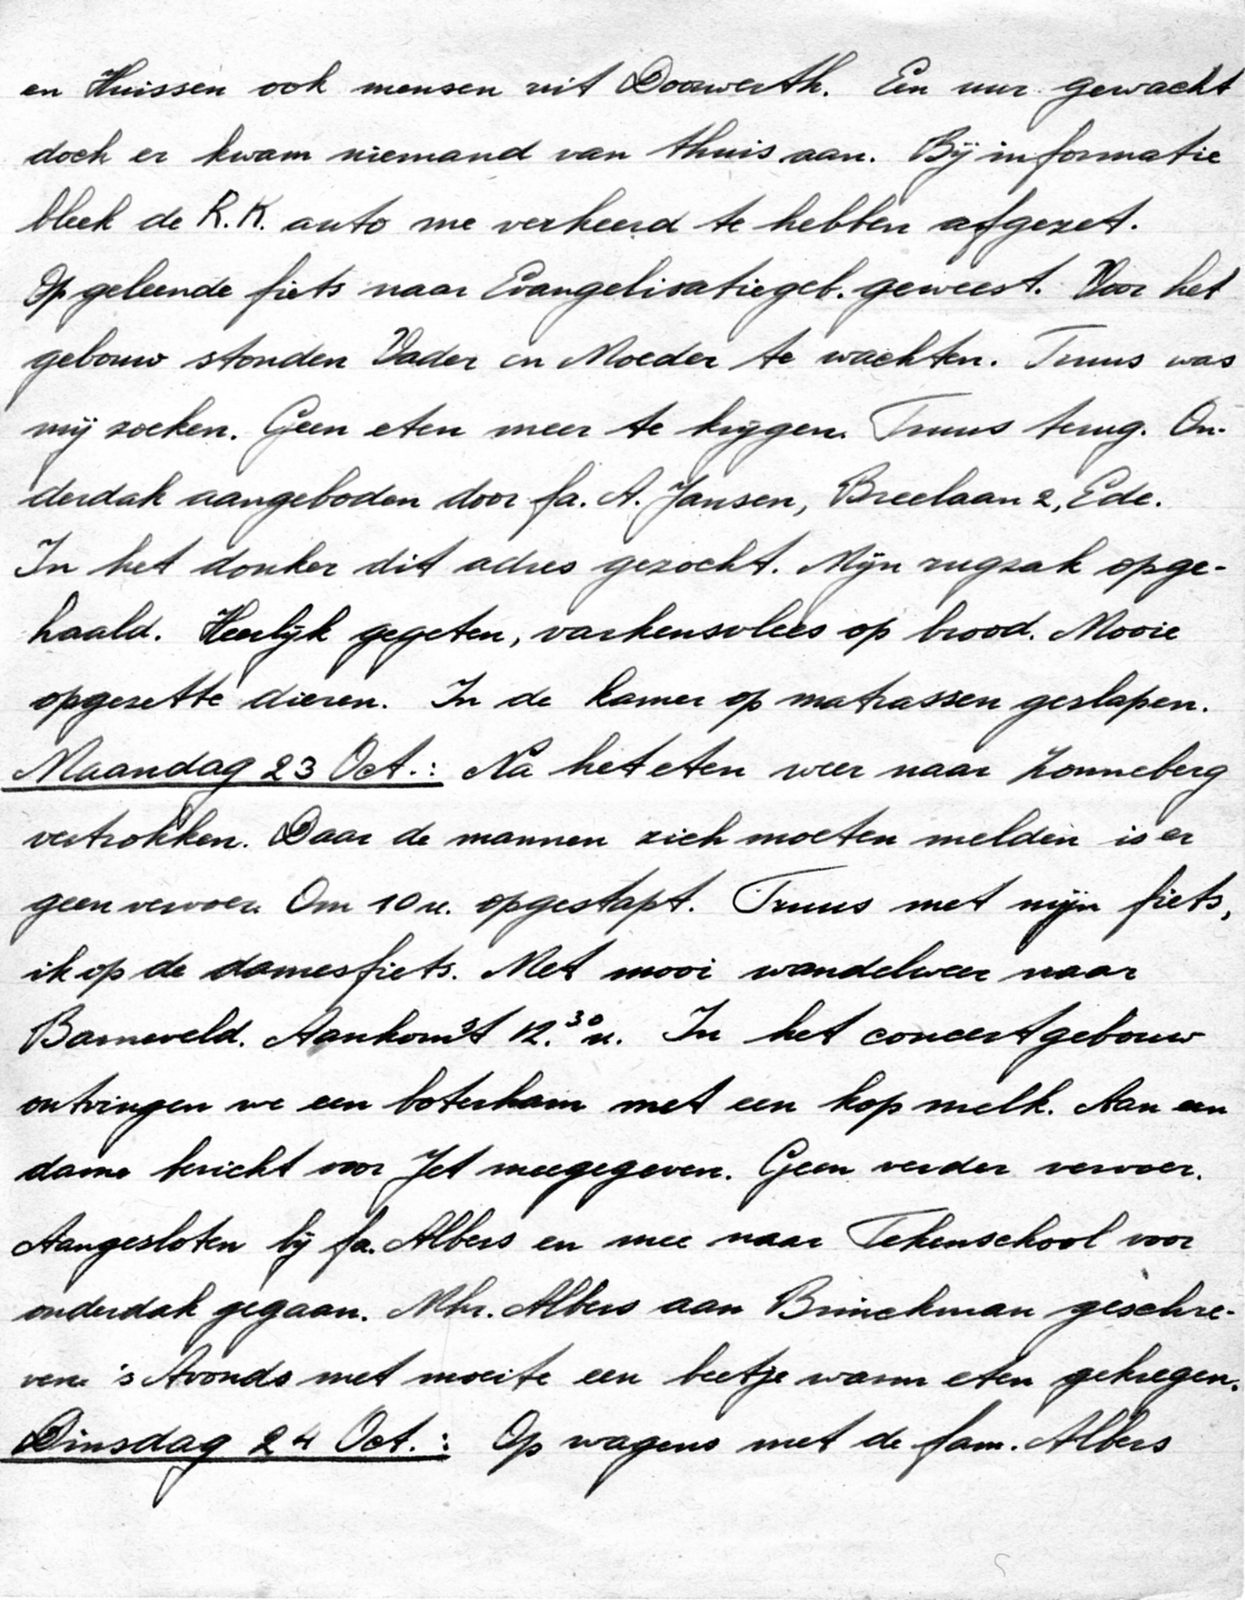 en Huissen ook mensen uit Doorwerth. Een uur gewacht
doch er kwam niemand van thuis aan. Bij informatie
bleek de R.K. auto me verkeerd te hebben afgezet.
Op geleende fiets naar Evangelisatiegeb. geweest. Voor het
gebouw stonden Vader en Moeder te wachten. Truus was
mij zoeken. Geen eten meer te krijgen. Truus terug. On-
derdak aangeboden door fa. A. Jansen, Breelaan 2, Ede.
In het donker dit adres gezocht. Mijn rugzak opge-
haald. Heerlijk gegeten, varkensvlees op brood. Mooie
opgezette dieren. In de kamer op matrassen geslapen.
Maandag 23 Oct.: Na het eten weer naar Zonneberg
vertrokken. Daar de mannen zich moeten melden is er
geen vervoer. Om 10 u. opgestapt. Truus met mijn fiets,
ik op de damesfiets. Met mooi wandelweer naar
Barneveld. Aankomst 12.30 u. In het concertgebouw
ontvingen we een boterham met een kop melk. Aan een
dame bericht voor Jet meegegeven. Geen verder vervoer.
Aangesloten bij fa. Albers en mee naar Tekenschool voor
onderdak gegaan. Mhr. Albers aan Brinckman geschre-
ven. 's Avonds met moeite een beetje warm eten gekregen.
Dinsdag 24 Oct.: Op wagens met de fam. Albers